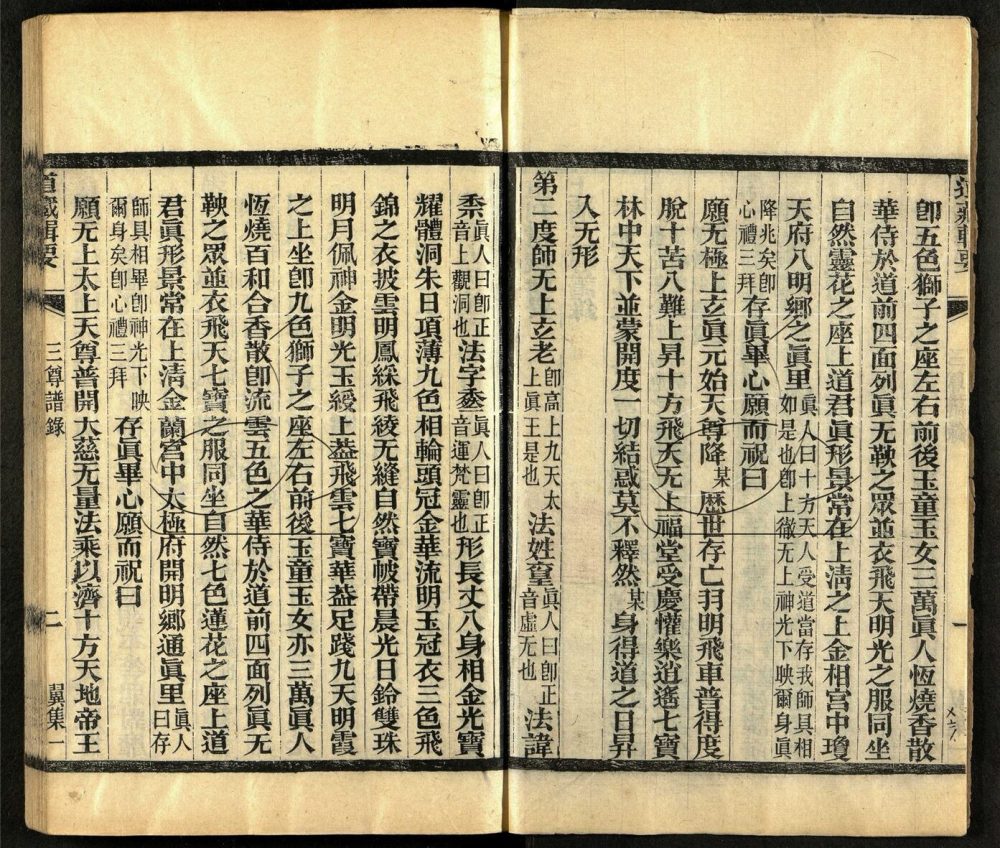 道藏輯要
一
卽五色獅子之座左右前後玉童玉女三萬眞人恆燒香散
華侍於道前四面列眞无鞅之眾並衣飛天明光之服同坐
自然靈花之座上道君眞形景常在上淸之上金相宮中瓊
天府八明鄉之眞里眞人曰十方天人受道當存我師具相如是也卽上徹无上神光下映爾身眞
降兆矣卽心禮三拜存眞畢心願而祝曰
願无極上玄眞元始天尊降某歷世存亡羽明飛車普得度
脫十苦八難上昇十方飛天无上福堂受慶懽樂逍遙七寶
林中天下並蒙開度一切結惑莫不釋然某身得道之日昇
入无形
第二度師无上玄老卽高上九天太上眞王是也法姓眞人曰卽正音虛无也法諱
眞人曰卽正音上觀洞也法字眞人曰卽正音運梵靈也形長丈八身相金光寶
耀體洞朱日項薄九色相輪頭冠金華流明玉冠衣三色飛
錦之衣披雲明鳳綵飛綾无縫自然寶帔帶晨光日鈴雙珠
明月佩神金明光玉綬上葢飛雲七寶華葢足踐九天明霞
之上坐卽九色獅子之座左右前後玉童玉女亦三萬眞人
恆燒百和合香散卽流雲五色之華侍於道前四面列眞无
鞅之眾並衣飛天七寶之服同坐自然七色蓮花之座上道
君眞形景常在上淸金蘭宮中太極府開明鄉通眞里眞人曰存
師具相畢卽神光下映爾身矣卽心禮三拜存眞畢心願而祝曰
願无上太上天尊普開大慈无量法乘以濟十方天地帝王
道藏輯要
三尊譜錄
二
翼集一